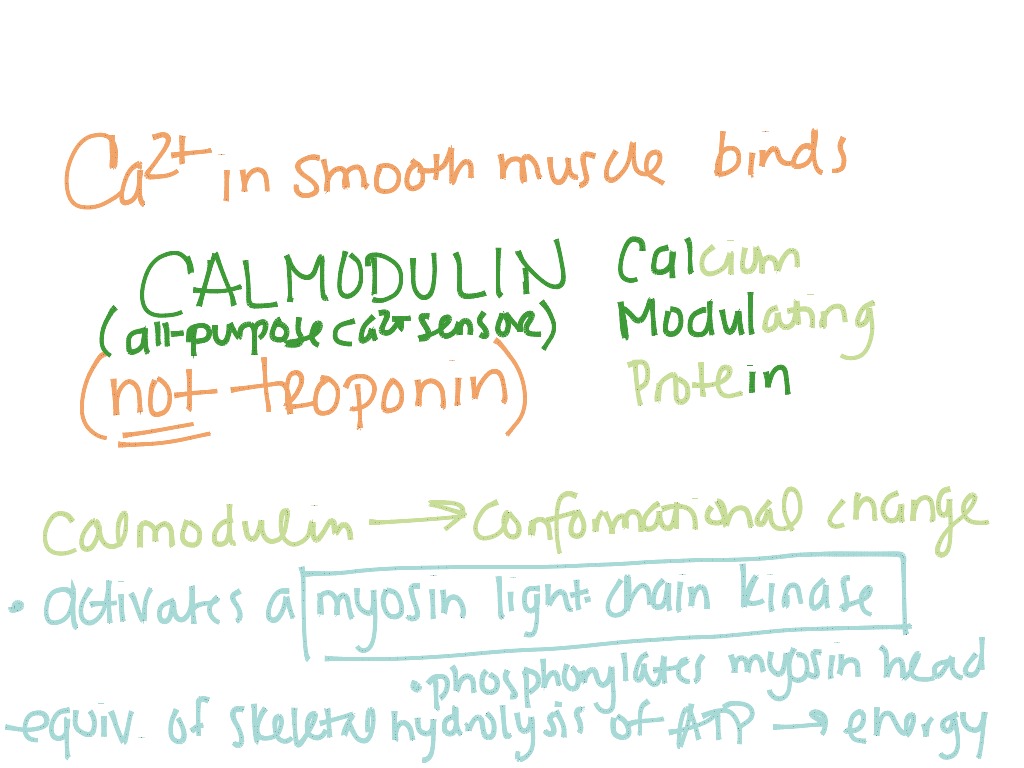 Ca²⁺ in smooth muscle binds
CALMODULIN Calcium
(all-purpose Ca²⁺ sensor) Modulating
(not troponin) Protein
Calmodulin → Conformational change
• activates a myosin light chain kinase
• phosphorylates myosin head
-equiv. of skeletal hydrolysis of ATP → energy